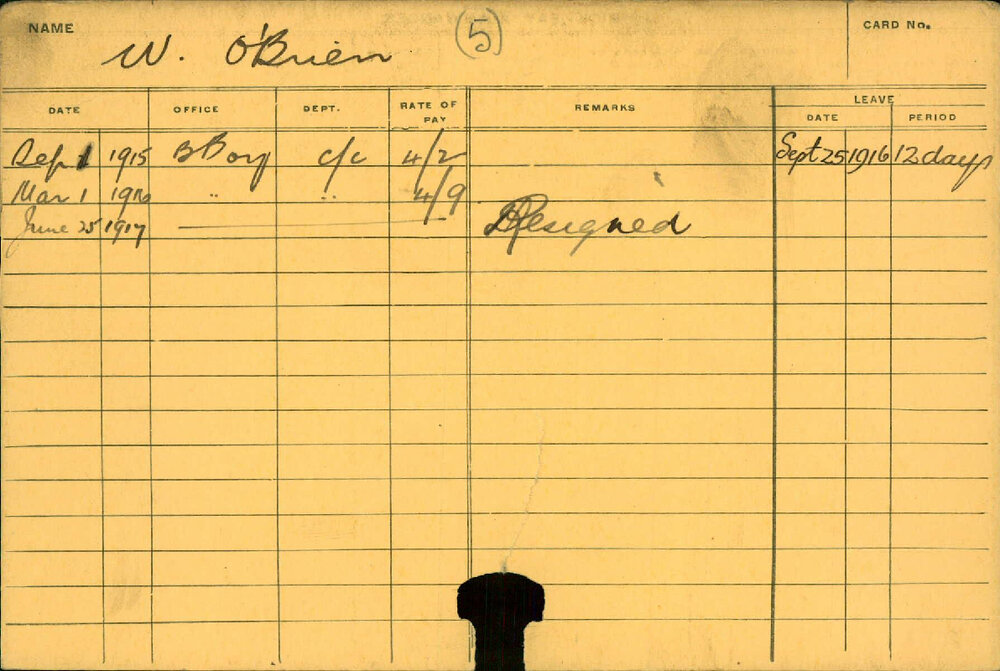 NAME W. O'Brien (5) CARD No.
DATE OFFICE DEPT. RATE OF PAY REMARKS LEAVE
DATE PERIOD
Sep 1 1915 B Boy c/c 4/2 Sept 25 1916 12 days
Mar 1 1916 " " 4/9
June 25 1917 Resigned